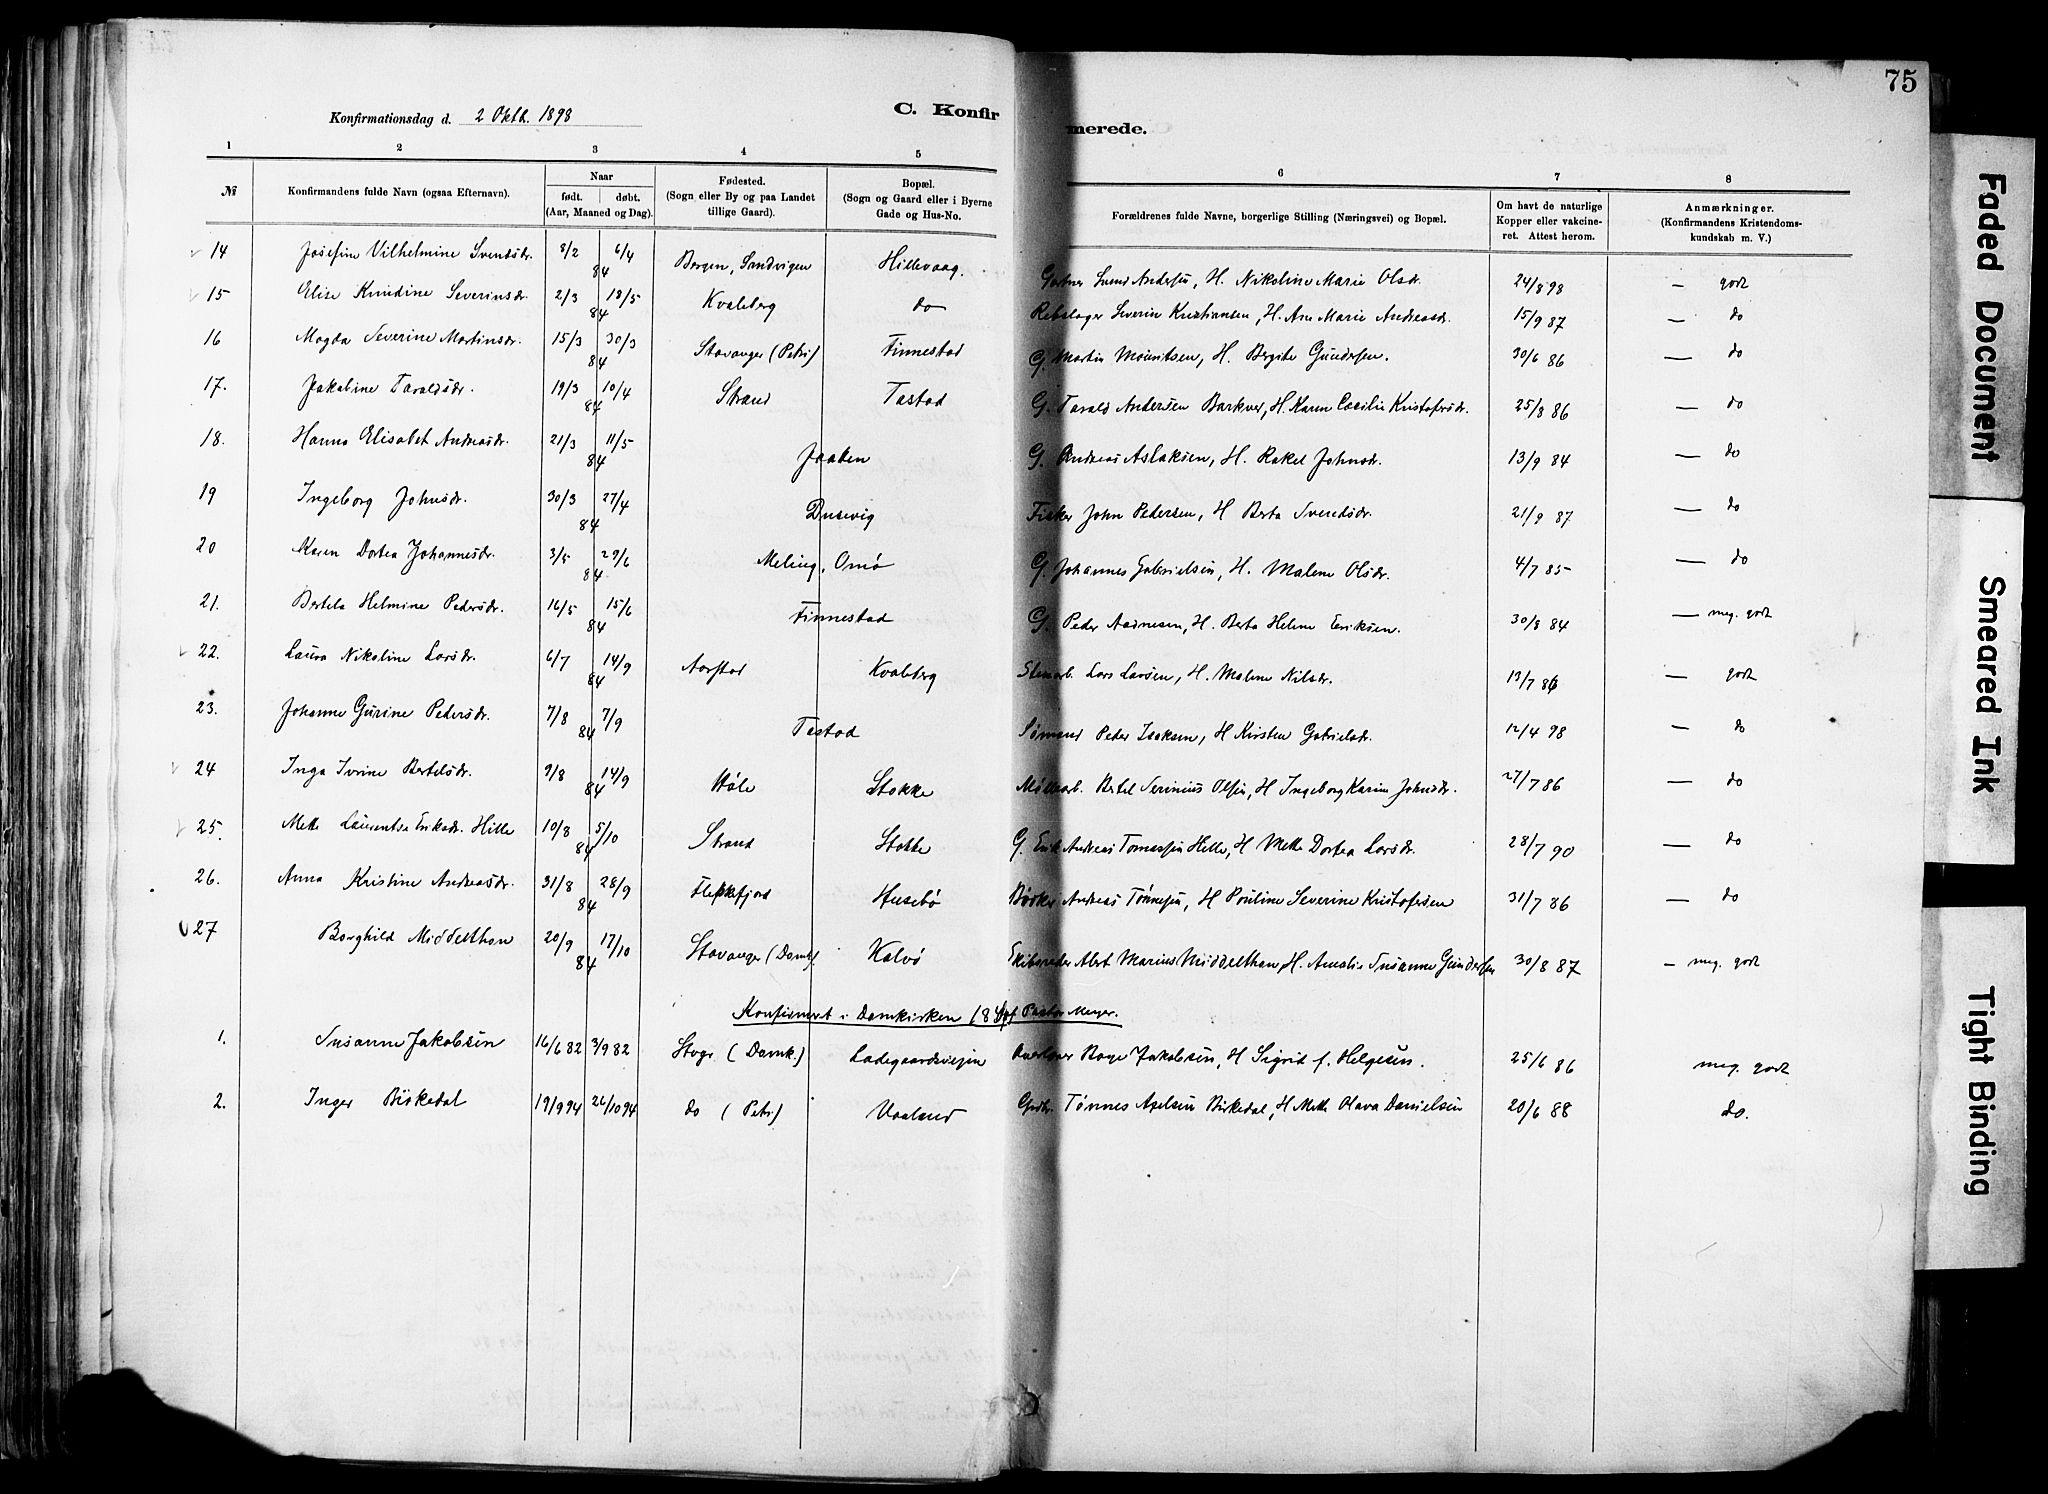 75
Konfirmationsdag d. 2 Oktb. 1898
C. Konfirmerede.
1 2 3 4 5 6 7 8
№ Konfirmandens fulde Navn (ogsaa Efternavn). Naar født. døbt. (Aar, Maaned og Dag). Fødested. (Sogn eller By og paa Landet tillige Gaard). Bopæl. (Sogn og Gaard eller i Byerne Gade og Hus-No. Forældrenes fulde Navne, borgerlige Stilling (Næringsvei) og Bopæl. Om havt de naturlige Kopper eller vakcineret. Attest herom. Anmærkninger. (Konfirmandens Kristendomskundskab m. V.)
14 Josefine Vilhelmine Svendsdr. 8/2 6/4 84 Bergen, Sandvigen Hillevaag. Gartner Svend Andersen, H. Nikoline Marie Olsdr. 24/8 98 — godt
15 Elise Knudine Severinsdr. 2/3 18/5 84 Kvaleberg do Rebslager Severin Kristiansen, H. Ane Marie Andreasdr. 15/9 87 — do
16 Magda Severine Martinsdr. 15/3 30/3 84 Stavanger (Petri) Finnestad G. Martin Mauritsen, H. Bergite Gundersen. 30/6 86 — do
17. Jakobine Taraldsdr. 19/3 10/4 84 Strand Tastad G. Tarald Andersen Barkver, H. Karen Cecilie Kristofersdr. 25/8 86 — do
18. Hanna Elisabet Andreasdr. 21/3 11/5 84 Jaaten G. Andreas Aslaksen, H. Rakel Johnsdr. 13/9 84 — do
19 Ingeborg Johnsdr. 30/3 27/4 84 Dusevig Fisker John Pedersen, H Berta Svendsdr. 21/9 87 — do
20 Karen Dortea Johannesdr. 3/5 29/6 84 Meling, Omø G. Johannes Gabrielsen, H. Malene Olsdr. 4/7 85 — do
21. Bertela Helmine Pedersdr. 16/5 15/6 84 Finnestad G. Peder Aanesen, H. Berta Helene Eriksen. 30/8 84 — meg. godt
22. Laura Nikoline Larsdr. 6/7 14/9 84 Aarstad Kvaleberg Stenarb. Lars Larsen, H. Malene Nilsdr. 13/7 86 — godt
23. Johanne Gurine Pedersdr. 7/8 7/9 84 Tastad Sømand Peder Isaksen, H Kirsten Gabrielsdr. 12/4 98 — do
24 Inga Ivrine Bertelsdr. 9/8 14/9 84 Høle Stokke Møllearb. Bertel Serinius Olsen, H Ingeborg Karine Johnsdr. 27/7 86 — do
25. Mette Laurentse Eriksdr. Hille 10/8 5/10 84 Strand Stokke G. Erik Andreas Tomassen Helle, H Mette Dortea Larsdr. 28/7 90 — do
26. Anna Kristine Andreasdr. 31/8 28/9 84 Flekkefjord Husebø Bødker Andreas Tønnesen, H Pouline Severine Kristofersen 31/7 86 — do
27 Borghild Middelthon 20/9 17/10 84 Stavanger (Domk). Kalvø Skibsreder Alert Marius Middelthon, H. Amalie Susanne Gundersen 30/8 87 — meg. godt
Konfirmeret i Domkirken af Pastor Meyer.
1. Susanne Jakobsen 16/6 82 3/9 82 Stvgr (Domk.) Ladegaardsveien Bage Jakobsen, H Sigrid f. Helgesen. 25/6 86 meg. godt
2. Inger Birkedal 19/9 94 26/10 94 do (Petri) Vaaland Tønnes Axelsen Birkedal, H Mette Olava Danielsen 20/6 88 do.
Faded Document
Smeared Ink
Tight Binding